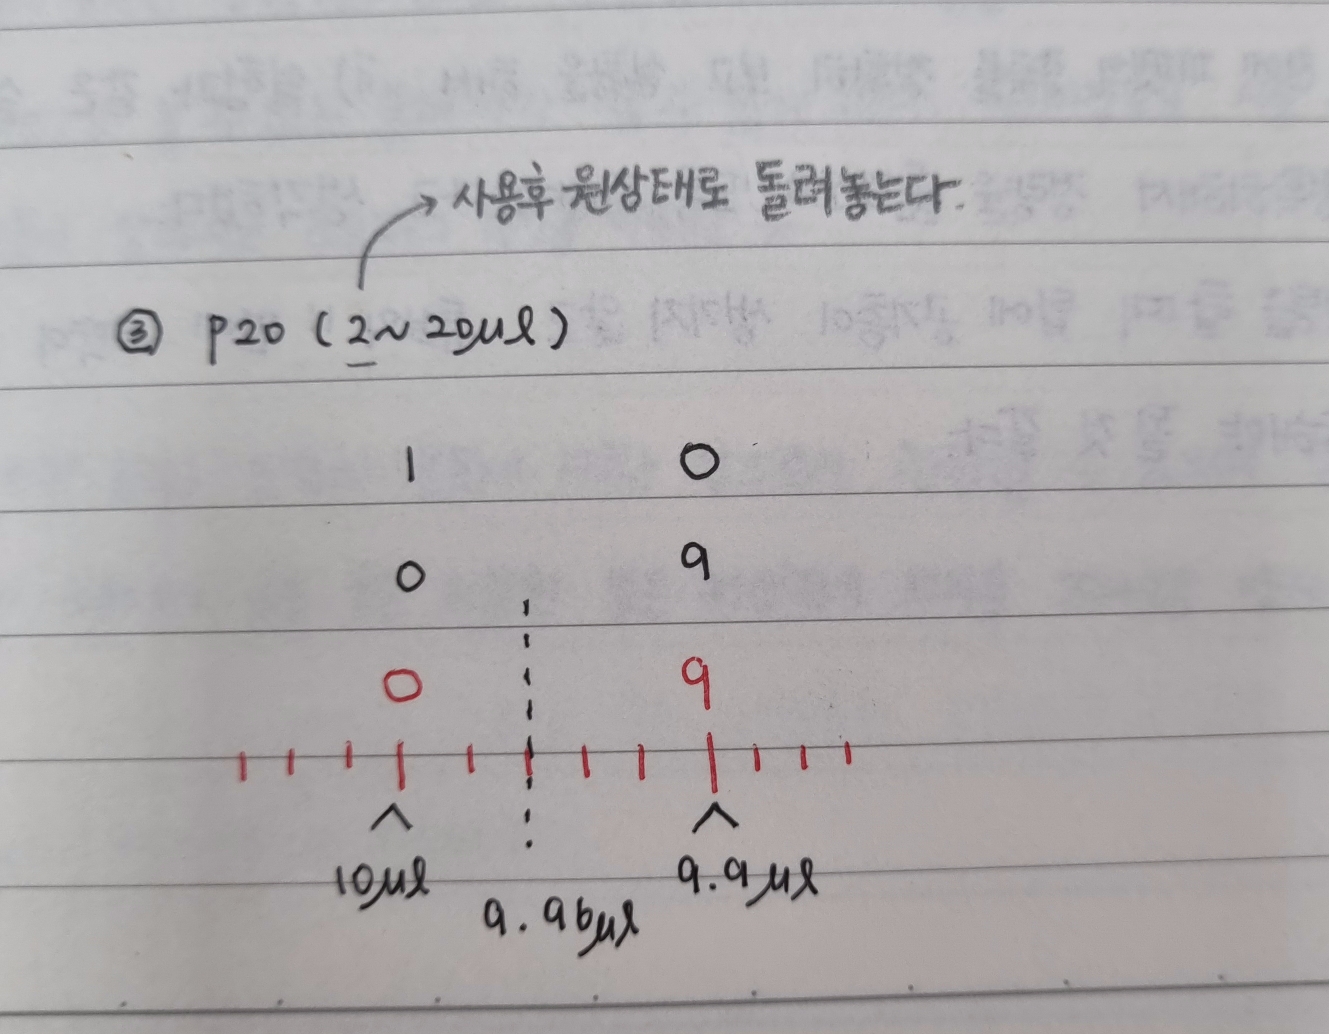 사용후 원상태로 돌려놓는다.
③ P20 (2~20μl)
1 0
0 9
0 9
10μl 9.9μl
9.96μl